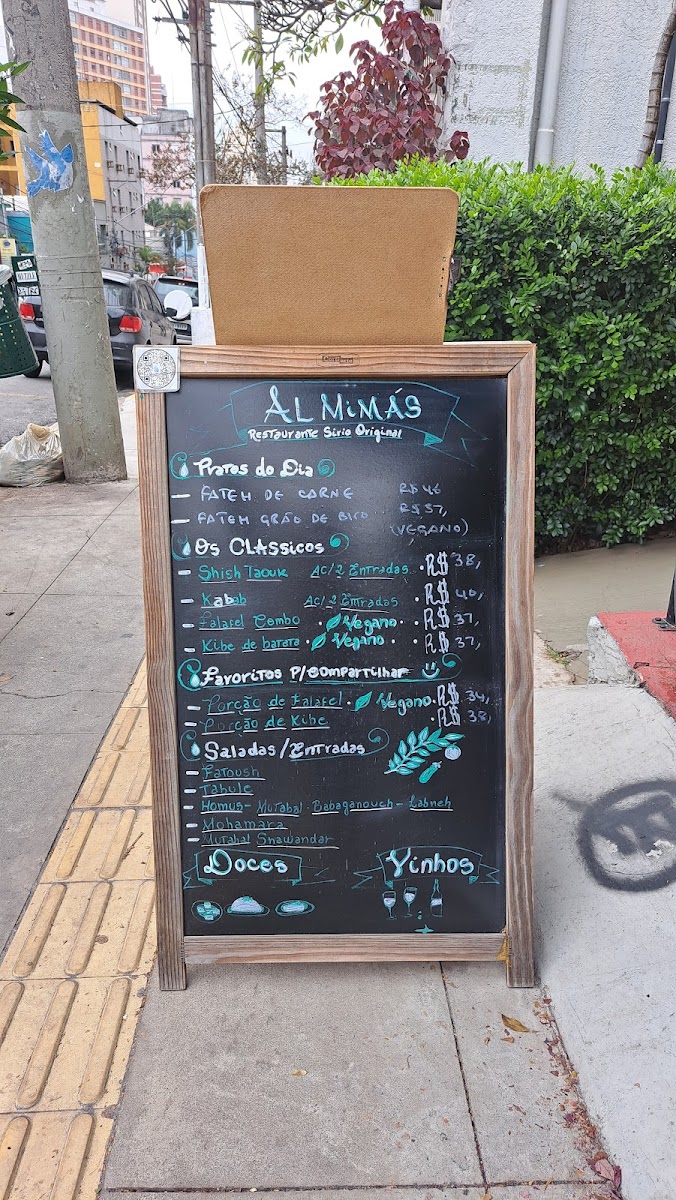 AL MiMÁS
Restaurante Sirio Original
Pratos do Dia
- FATEH DE CARNE R$ 46
- FATEH GRÃO DE BICO R$ 37,
(VEGANO)
Os CLASSicos
- Shish Taouk AC/2 Entradas . R$ 38,
- Kabab AC/2 Entradas . R$ 40,
- Falafel Combo . Vegano . . R$ 37,
- Kibe de batata . Vegano . . R$ 37,
Favoritos P/compartilhar
- Porção de Falafel . Vegano . R$ 34,
- Porção de Kibe . R$ 38,
Saladas/Entradas
- Fatoush
- Tabule
- Homus - Mutabal - Babaganouch - Labneh
- Mohamara
- Mutabal Shawandar
Doces
Vinhos